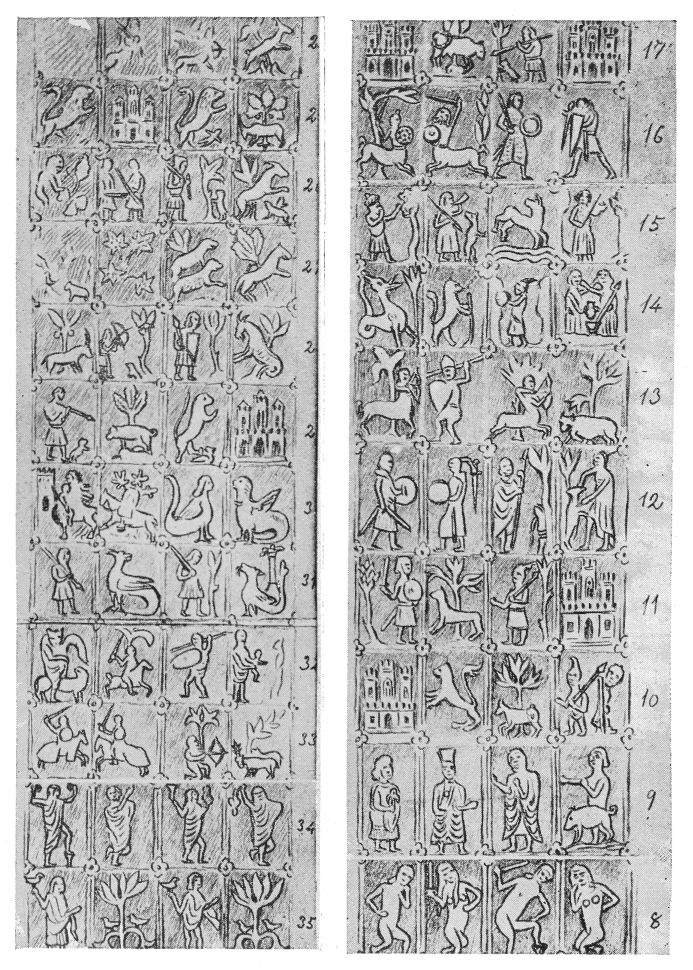 2
2
2
2
2
2
3
31
32
33
34
35
17
16
15
14
13
12
11
10
9
8